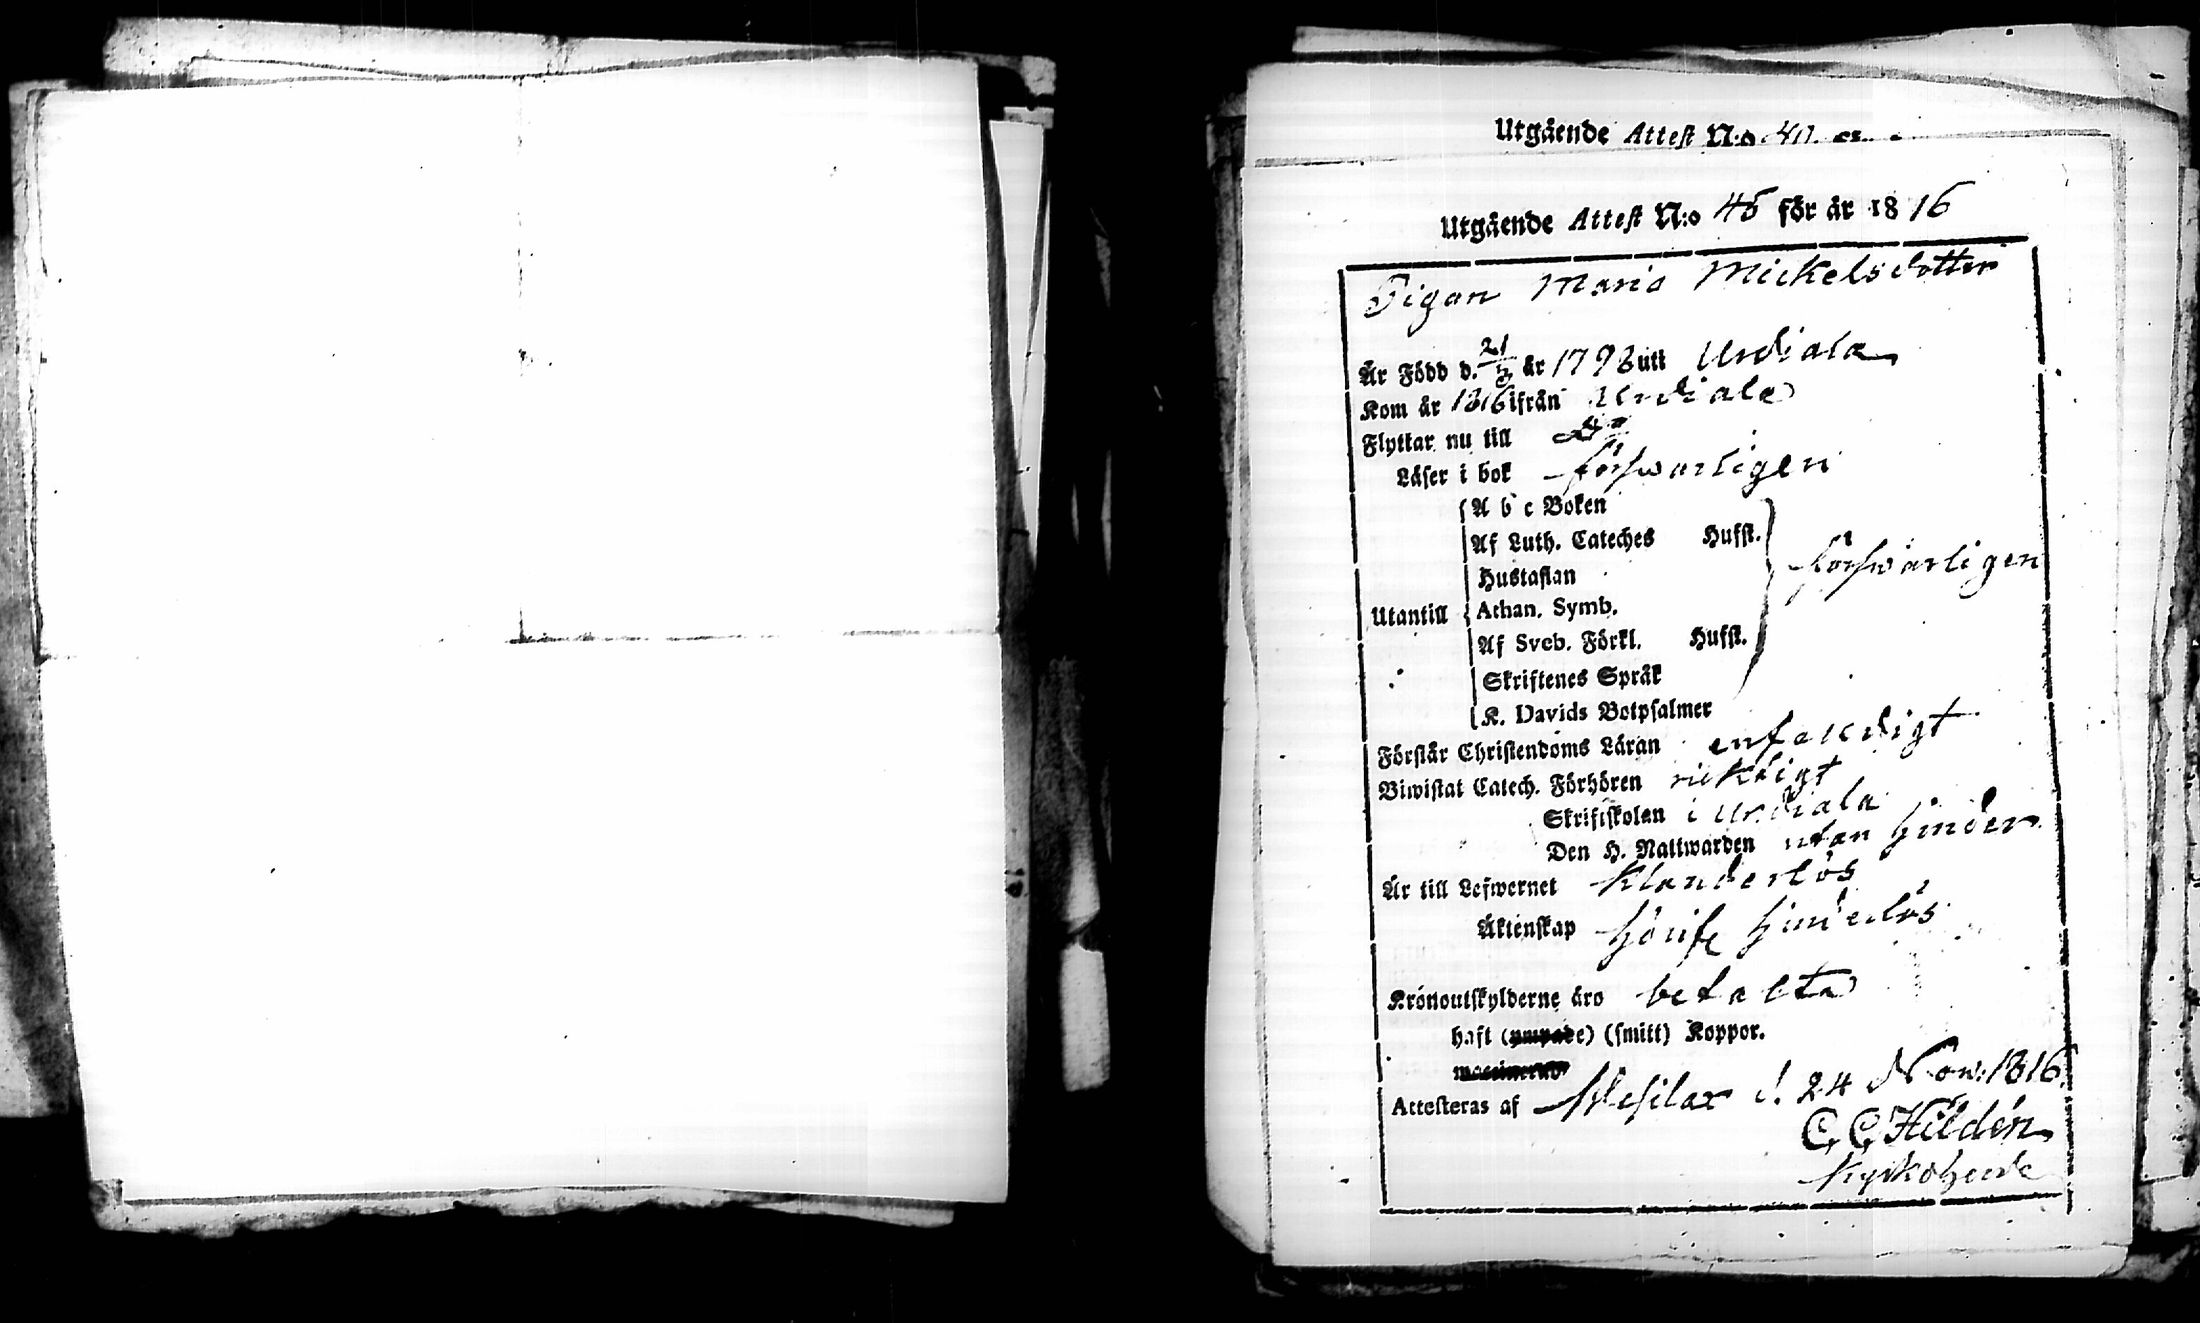 Utgående Attest N:o 40.
Utgående Attest N:o 45 för år 1816
Pigan Maria Mickelsdotter
Är Född d. 21/3 år 1793 uti Urdiala
Kom år 1816 ifrån Urdiala
Flyttar nu till Do
Läser i bok förswarligen
A b c Boken
Af Luth. Cateches Hufst.
Hustaflan
förswarligen
Utantill
Athan. Symb.
Af Sveb. Förkl. Hufst.
Skriftenes Språk
K. Davids Botpsalmer
Förstår Christendoms Läran enfaldigt
Biwistat Catech. Förhörenricktigt
Skriftskolan i Urdiala
Den H. Nattwarden utan hinder
Är till Lefwernet Klanderlös
Äktenskap hinderlös
Kronoutskylderne äro betalta
haft (smitt) Koppor.
Attesteras af Wesilax d. 24 Now: 1816.
C. C. Hildén
Kyrkoherde